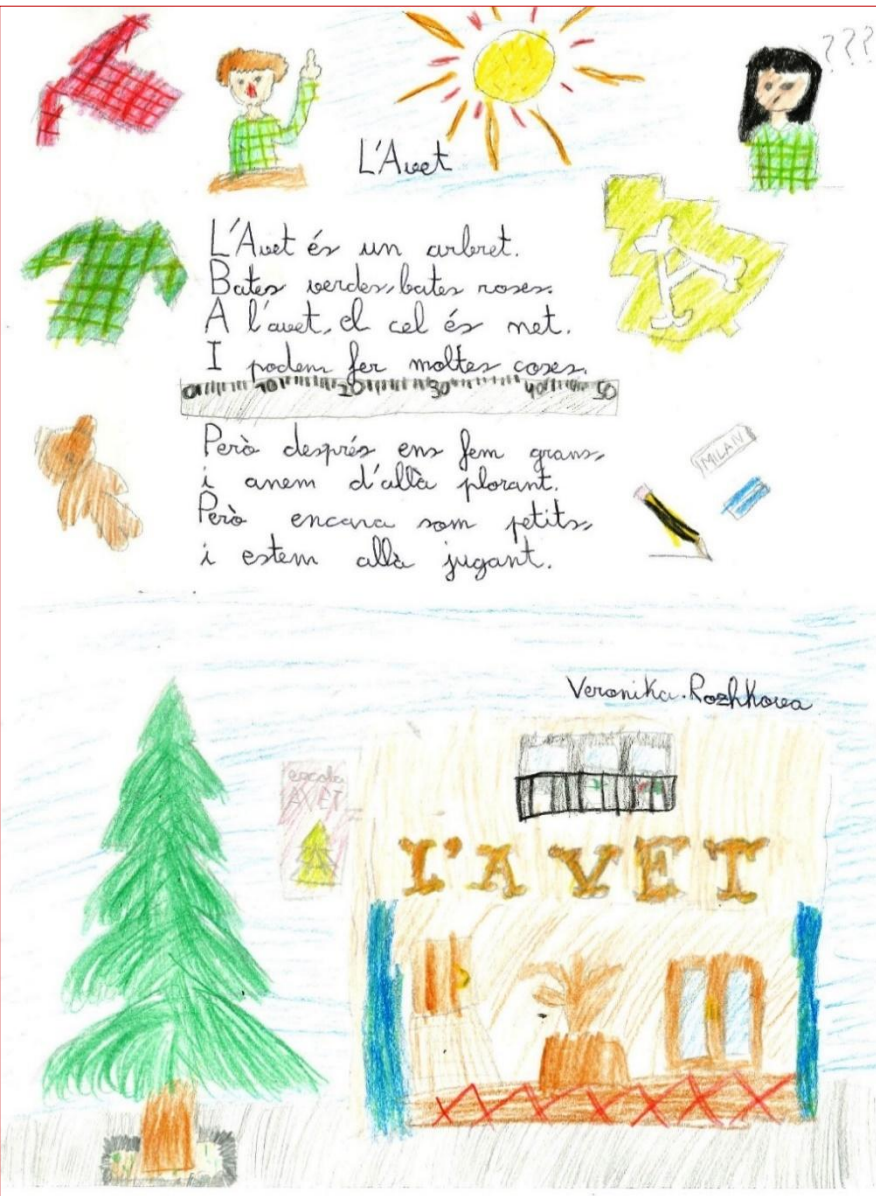 ???
L'Avet
L'Avet és un arbret.
Bates verdes, bates roses.
A l'avet, el cel és net.
I podem fer moltes coses.
0 10 20 30 40 50
Però després ens fem grans,
i anem d'allà plorant.
Però encara som petits,
i estem allà jugant.
A
MILAN
Veronika.Rozhkova
escola
AVET
L'AVET